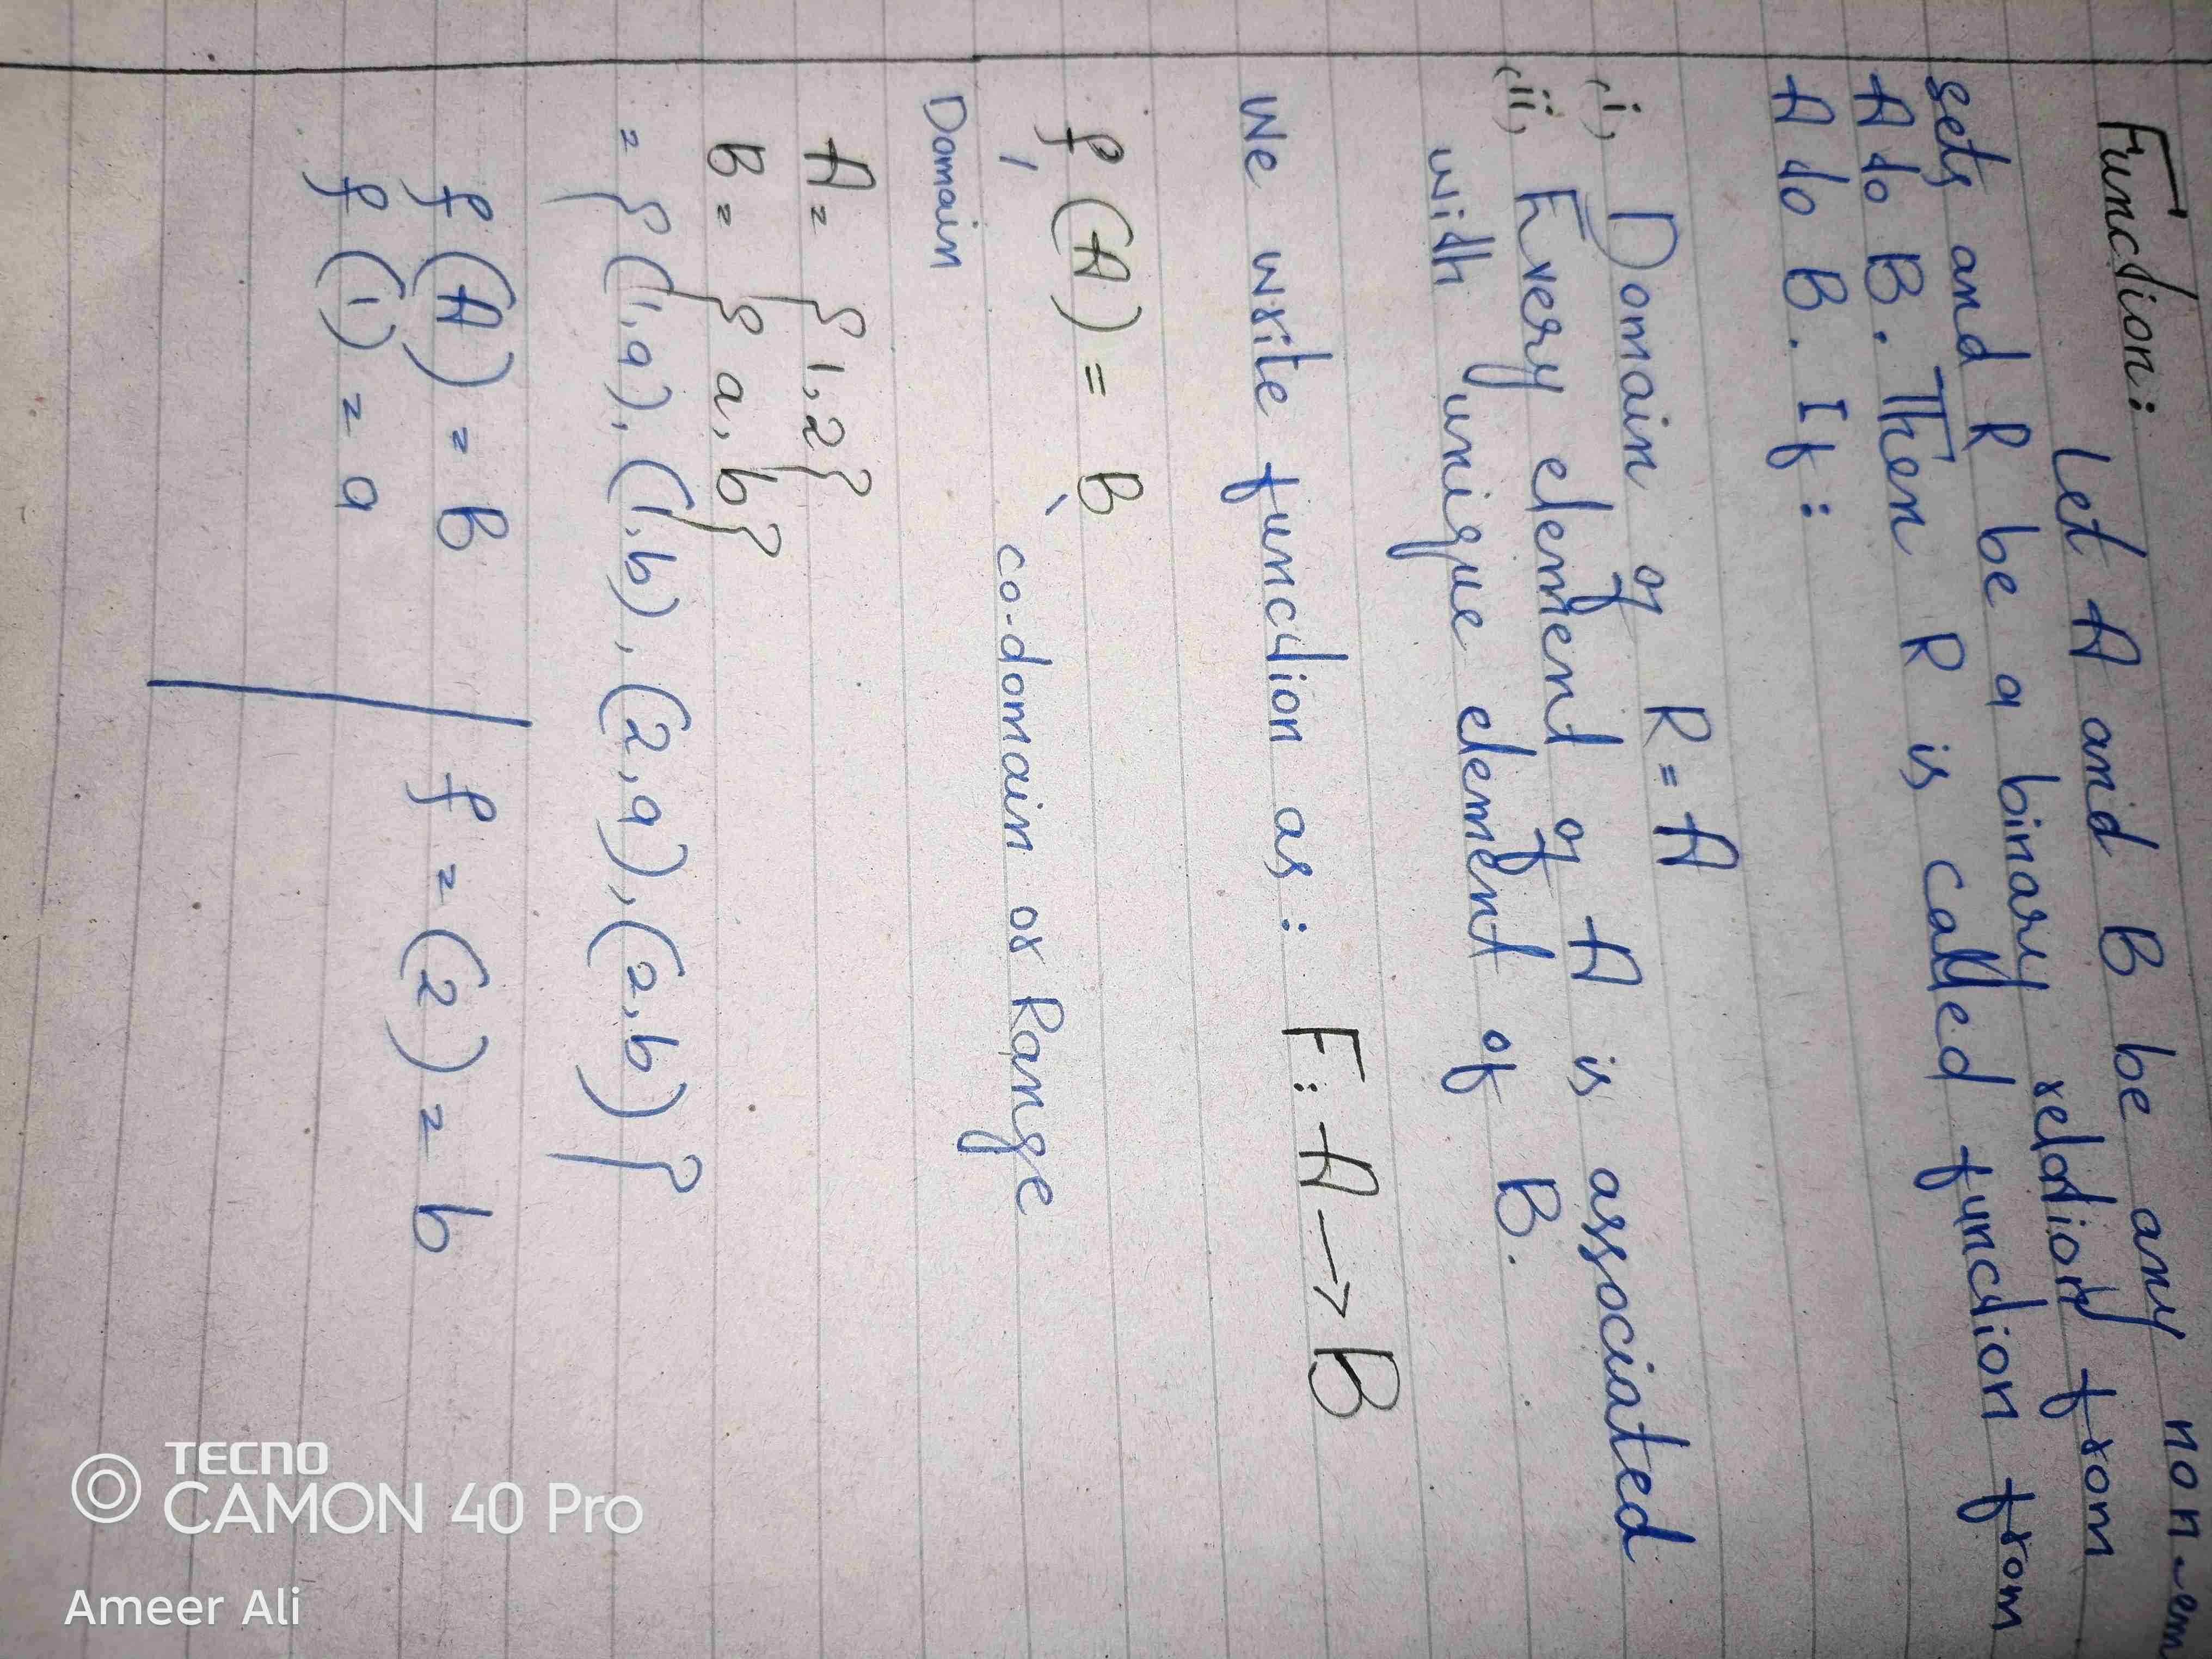 Function:
Let A and B be any non-em
sets and R be a binary relation from
A to B. Then R is called function from
A to B. If:
(i) Domain of R = A
(ii) Every element of A is associated
with unique element of B.
We write function as: F: A → B
f (A) = B
co-domain or Range
Domain
A = {1,2}
B = {a, b}
= {(1,a), (1,b), (2,a), (2,b)}
f (A) = B
f (1) = a
f = (2) = b
TECNO
CAMON 40 Pro
Ameer Ali